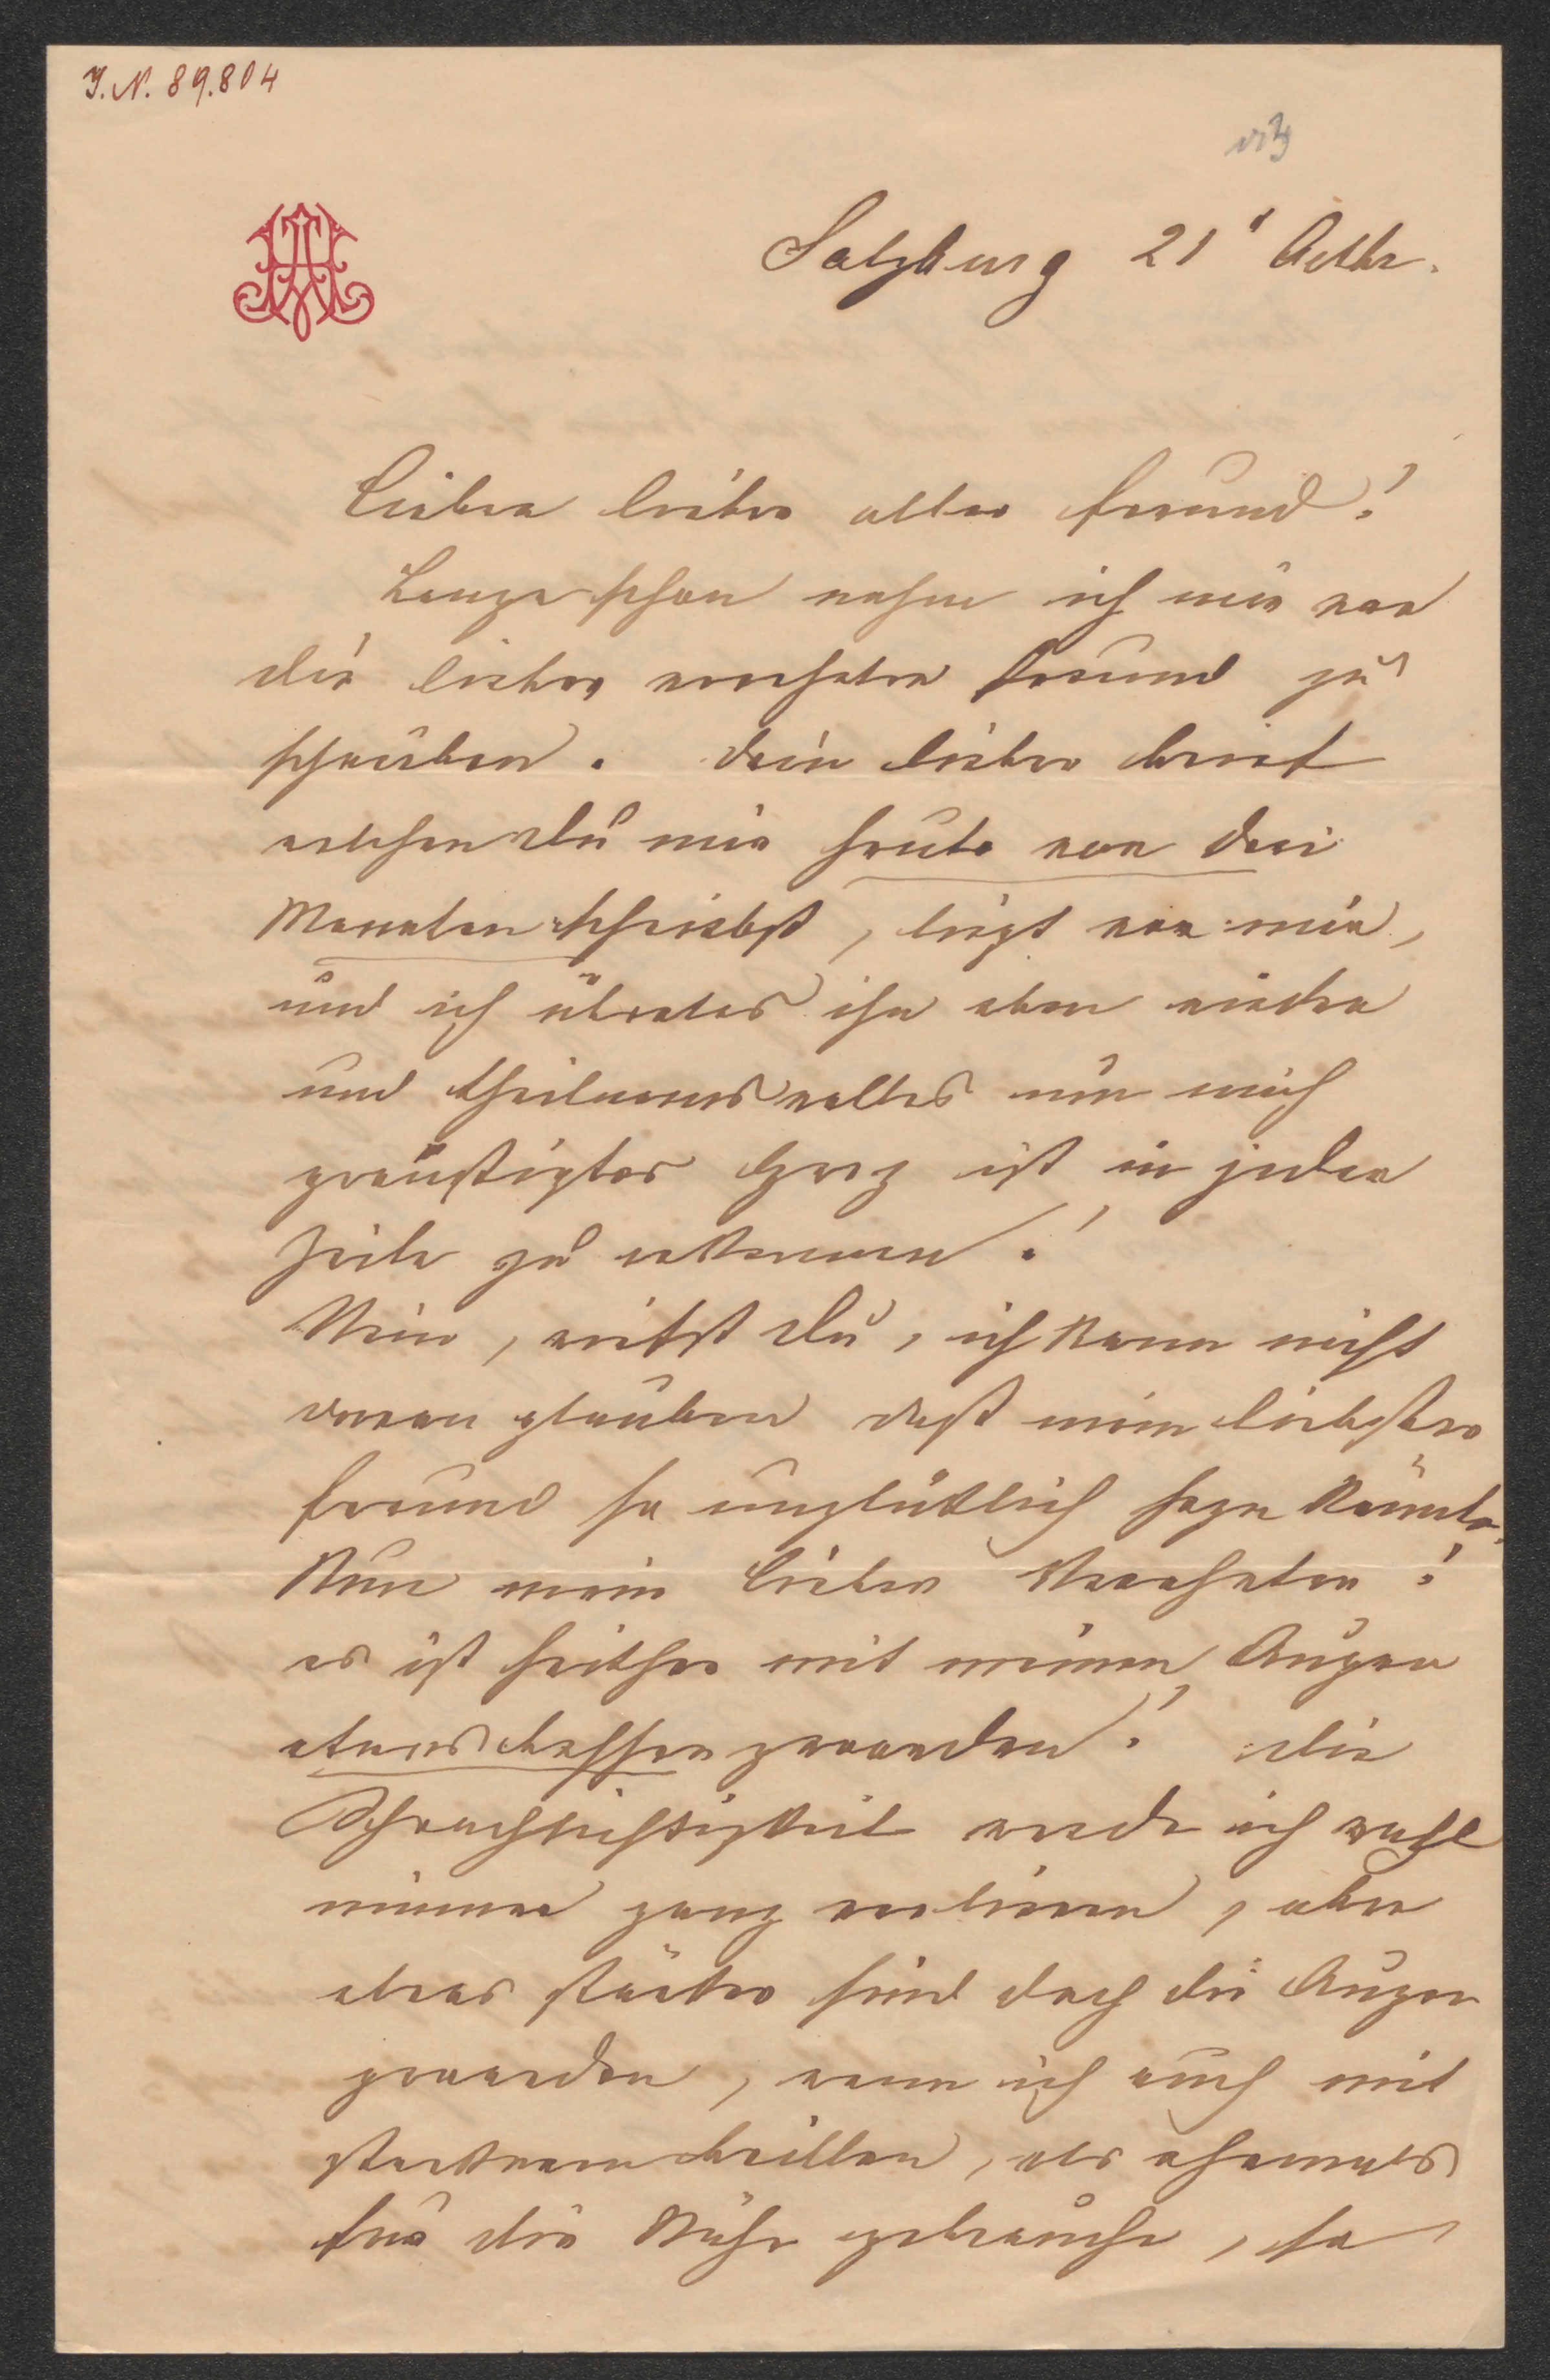 I.N. 89.804
Salzburg 21" Octbr.
Lieber lieber alter Freund!
Lange schon nehme ich mir vor
dir lieber verehrter Freund zu
schreiben. Dein lieber Brief
welchen du mir heute vor drei
Monaten schriebst, liegt vor mir,
und ich ihn eben wieder
und theilnamsvolles um mich
geängstigtes Herz ist in jeder
Zeile zu erkennen!
Nein, rufst du, ich kann nicht
daran glauben daß mein liebster
Freund so unglücklich seyn könnte.
Nun mein lieber Verehrter!
es ist seither mit meinen Augen
etwas besser geworden! die
Schwachsichtigkeit werde ich wohl
nimmer ganz verlieren, aber
etwas stärker sind doch die Augen
geworden, wenn ich auch mit
stärkeren Brillen, als ehemals
für die Nähe gebrauche, so